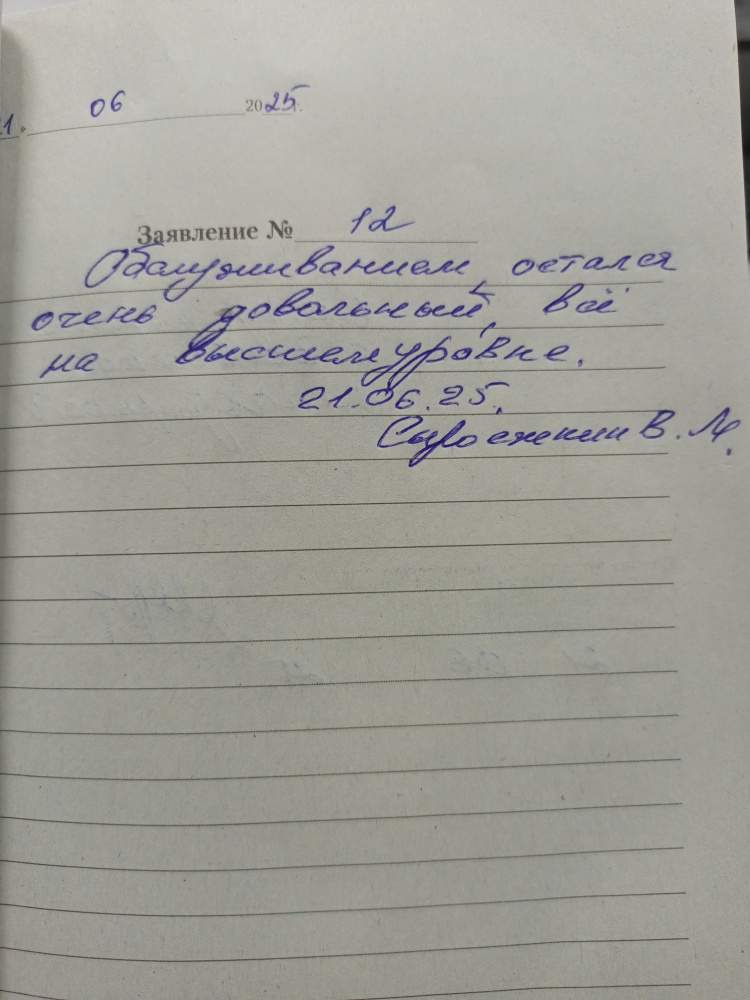 21 » 06 2025г.
Заявление № 12
Обслуживанием, остался
очень довольный, всё
на высшем уровне.
21.06.25.
Сыроежкин В. М.